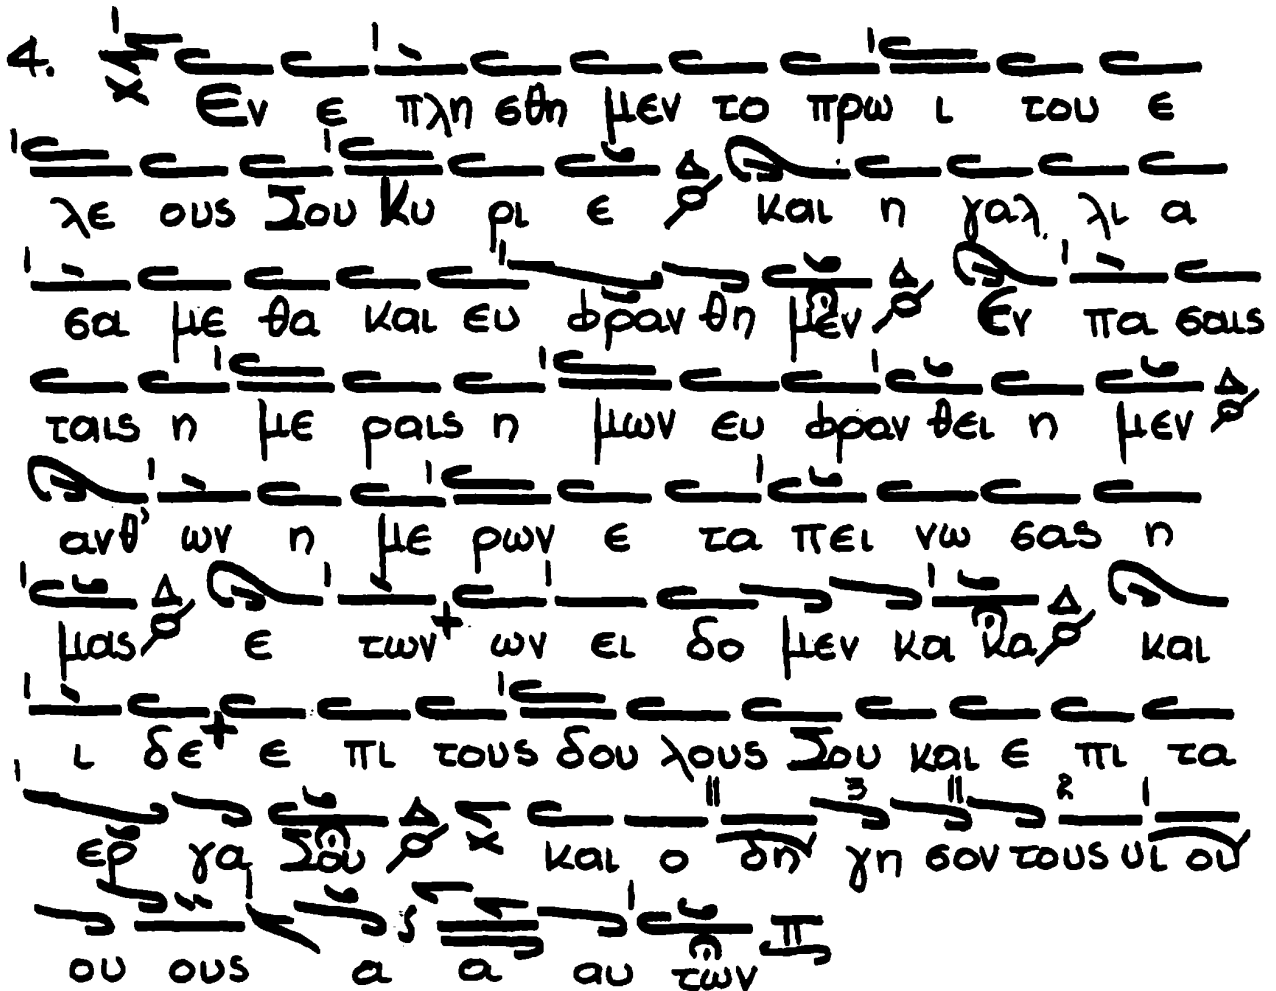 4. Εν ε πλη σθη μεν το πρω ι του ε
λε ους Σου Κυ ρι ε Δ και η γαλ λι α
σα με θα και ευ φραν θη μεν Δ Εν πα σαις
ταις η με ραις η μων ευ φραν θει η μεν Δ
ανθ' ων η με ρων ε τα πει νω σας η
μας Δ ε των ων ει δο μεν κα κα Δ και
ι δε ε πι τους δου λους Σου και ε πι τα
ερ γα Σου Δ και ο δη γη σον τους υι ου
ου ους α α αυ των Π